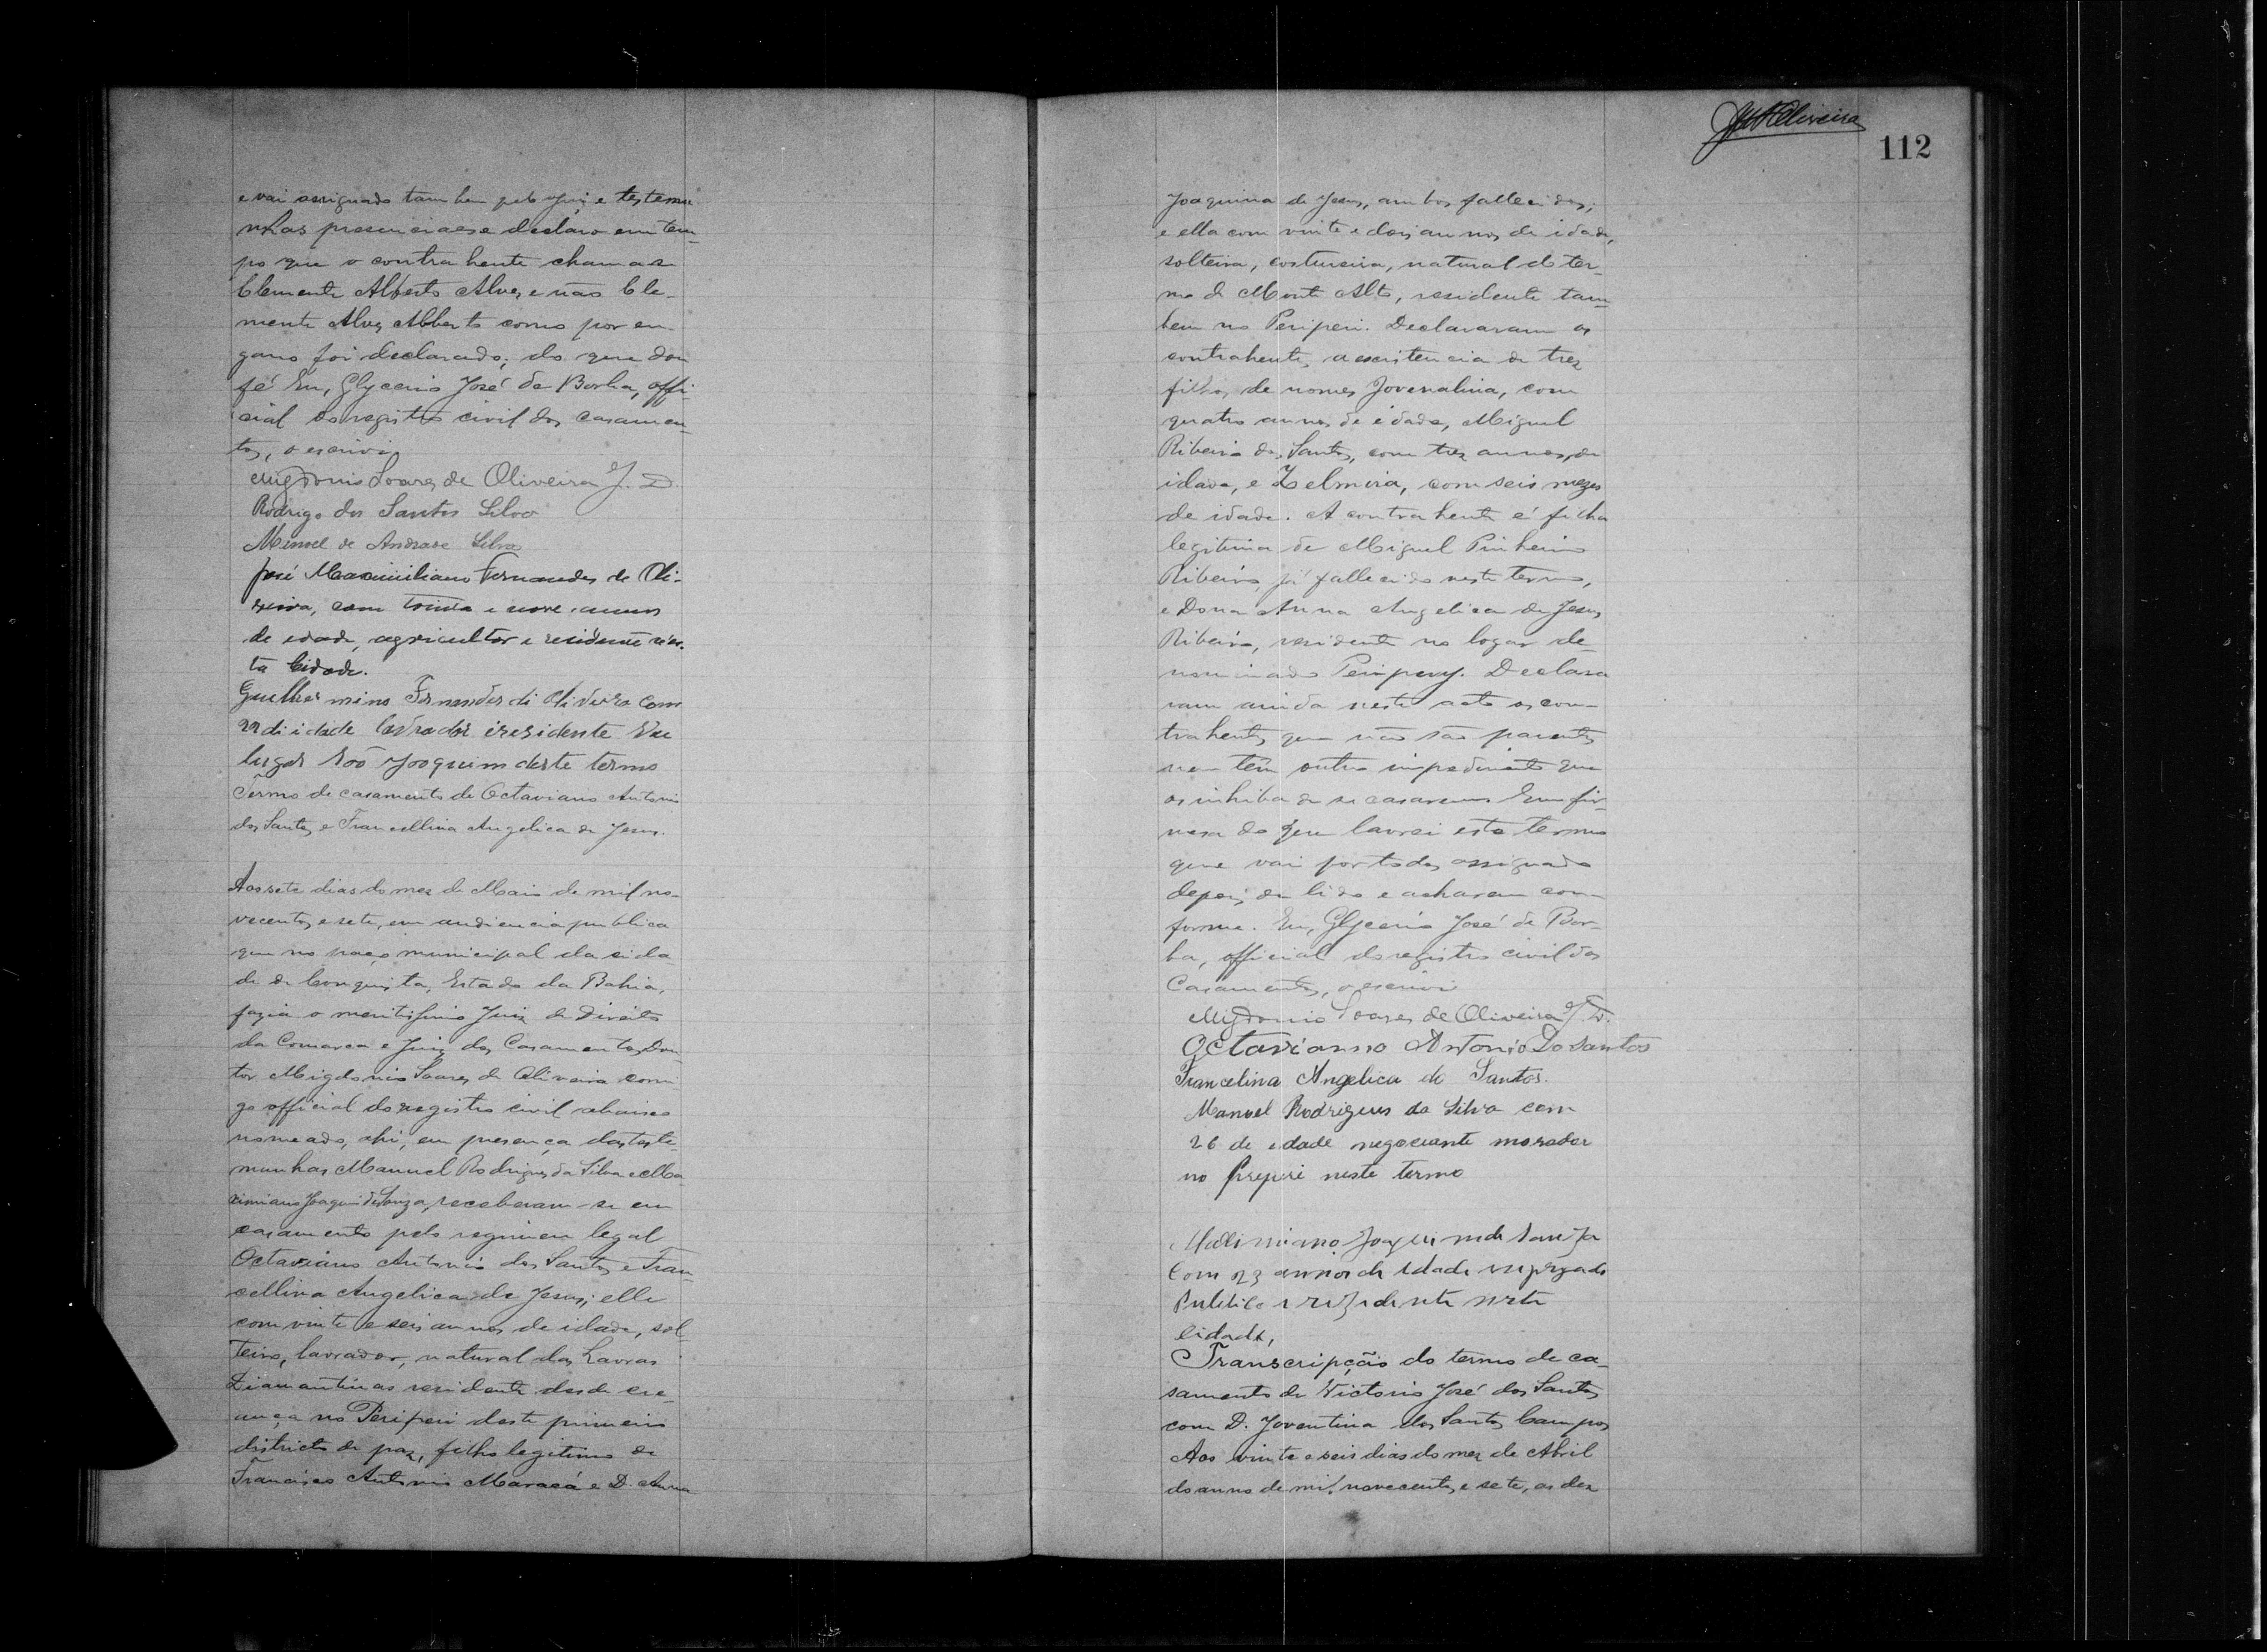 e vai assignado tambem pelo Juiz e testemu-
nhas presenciaes e declaro em tem-
po que o contrahente chama-se
Clemente Alberto Alves e não Cle-
mente Alves Alberto como por en-
gano foi declarado; do que dou
fé Eu, Glycerio José de Borba, offi-
cial do registro civil dos casamen-
tos, o escrivi
Migdonio Soares de Oliveira J. D.
Rodrigo dos Santos Silva
Manoel de Andrade Silva
José Maximiliano Fernandes de Oli-
veira, com trinta e nove annos
de edade, agricultor e residente nes-
ta Cidade.
Guilhermino Fernandes di Oliveira com
di idade lavrador i residente
lugar São Joaquim deste termo
Termo de casamento de Octaviano Antonio
dos Santos e Francellina Angelica de Jesus.
Aos sete dias do mez de Maio de mil no-
vecentos e sete, em audiencia publica
que no paço municipal da cida
de de Conquista, Estado da Bahia,
fazia o meritissimo Juiz de Direito
da Comarca e Juiz dos Casamentos Dou-
tor Migdonio Soares de Oliveira comi
go official do registro civil abaixo
nomeado, ahi, em presença das teste-
munhas Manuel Rodrigues da Silva e Ma
ximiano Joaquim de Souza, receberam-se em
casamento pelo regimen legal
Octaviano Antonio dos Santos e Fran-
cellina Angelica de Jesus; elle
com vinte e seis annos de idade, sol-
teiro, lavrador, natural das Lavras
Diamantinas residente desde cre-
ança no Periperi deste primeiro
districto de paz, filho legitimo de
Francisco Antonio Maracá e D. Anna
112
Joaquina de Jesus, ambos fallecidos;
e ella com vinte e dois annos de idade,
solteira, costureira, natural do ter-
mo de Monte Alto, residente tam-
bem no Periperi. Declararam os
contrahentes a existencia de tres
filhos de nomes Jovenalina, com
quatro annos de idade, Miguel
Ribeiro dos Santos, com tres annos de
idade, e Zelmira, com seis mezes
de idade. A contrahente é filha
legitima de Miguel Pinheiro
Ribeiro, já fallecido neste termo,
e Dona Anna Angelica de Jesus
Ribeiro, residente no logar de-
nominado Peripery. Declara
ram ainda neste acto os con-
trahentes que não são parentes
nem têm outro impedimento que
os inhiba de se casarem Em fir-
mesa do que lavrei este termo
que vai por todos assignado
depois de lido e acharem con-
forme. Eu, Glycerio José de Bor-
ba, official do registro civil dos
Casamentos, o escrivi
Migdonio Soares de Oliveira J. D.
Octavianno Antonio Do Santos
Francelina Angelica do Santos.
Manoel Rodrigues da Silva com
26 de edade negociante morador
no Preperi neste termo
Joaquim de Souza
Com 23 annos de idade empregado
Publico e rezidente nesta
Cidade,
Transcripção do termo de ca-
samento de Victorio José dos Santos
com D. Joventina dos Santos Campos
Aos vinte e seis dias do mez de Abril
do anno de mil novecentos e sete, as dez